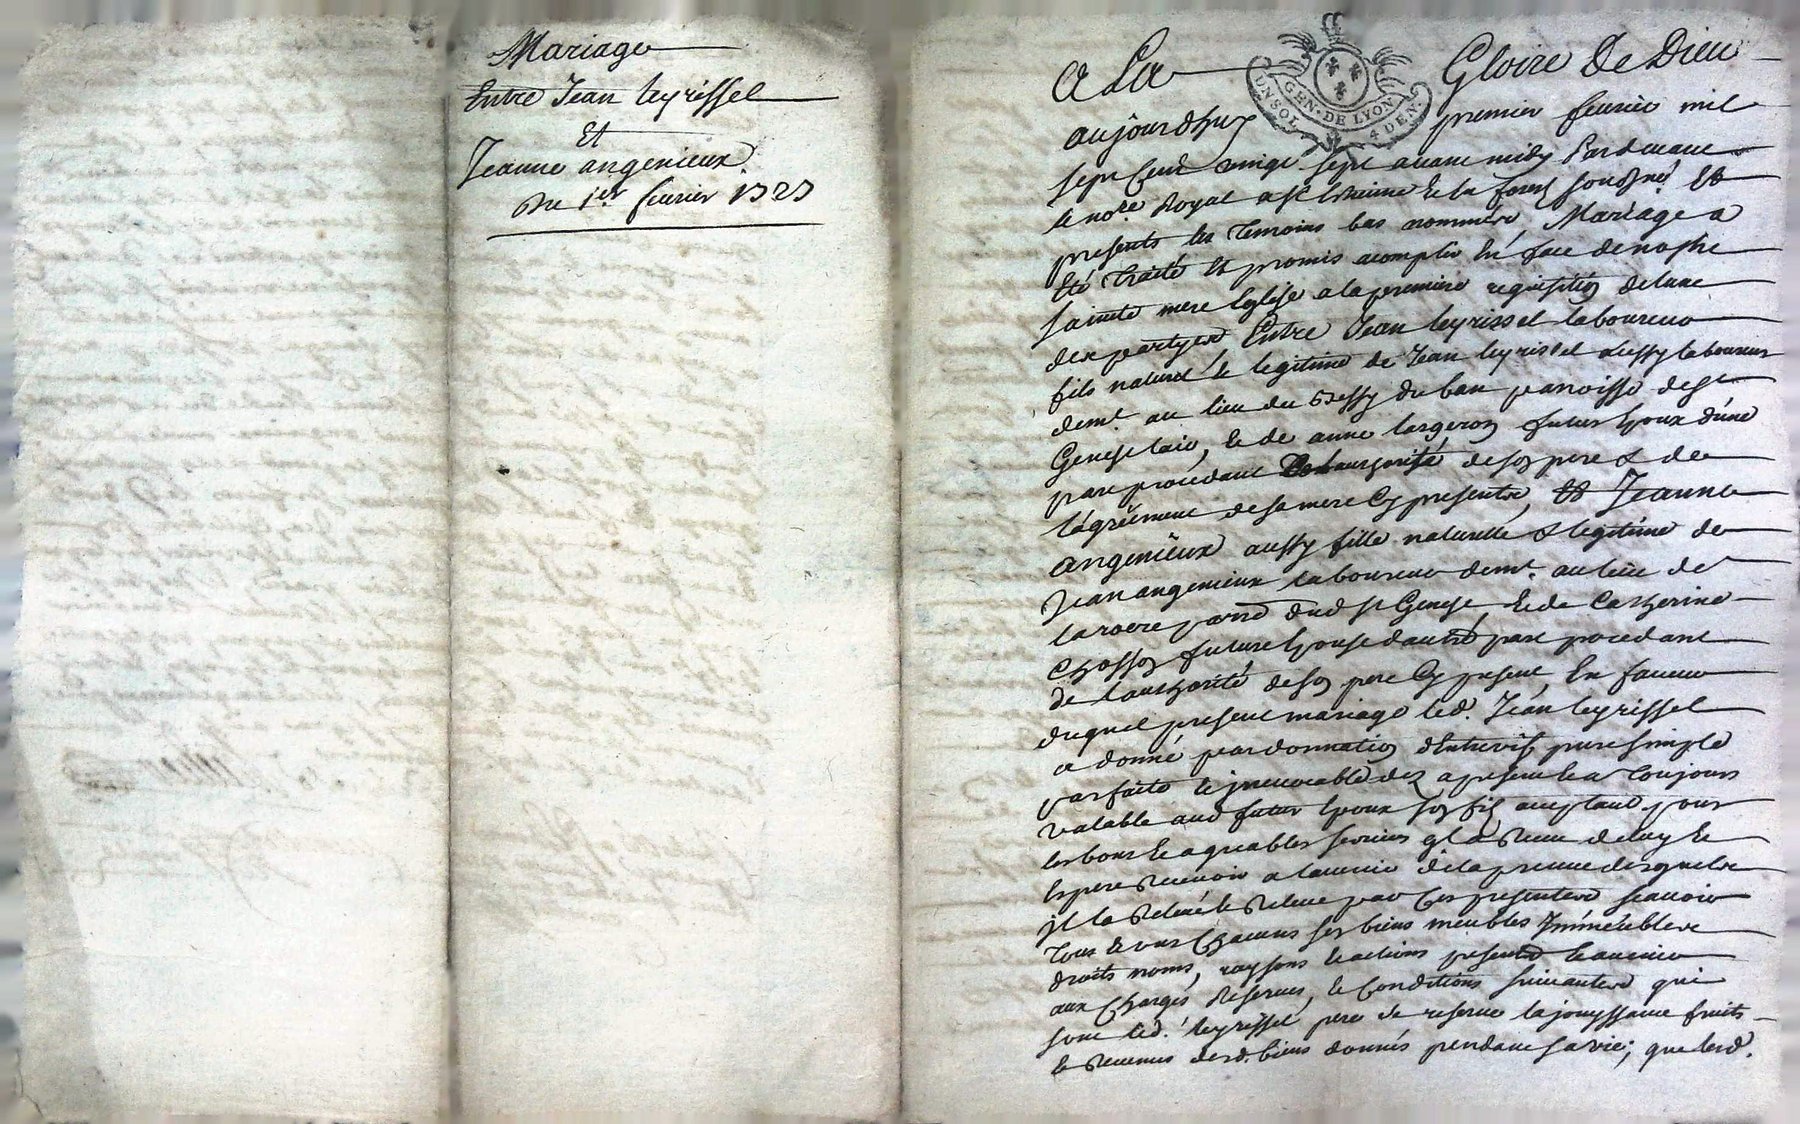 Mariage
Entre Jean leyrissel
Et
Jeanne angenieux.
Du 1er. fevrier 1727
A La Gloire De Dieu
GEN. DE LYON
UN SOL 4 DEN.
aujourdhuy premier fevrier mil
sept cent vingt sept avant midy Pardevant
le nore. Royal a st Etienne de en forest soussigné Et
presents les temoins bas nommés, Mariage a
Eté Traité Et promis acomplir En face de nostre
sainte mere Eglise a la premiere requisition delune
des partyes Entre Jean leyrissel laboureur
fils naturel & legitime de Jean leyrissel aussy laboureur
demt. au lieu du Bessy du ban parroisse de st
Genest lair, & de anne largeron futur Epoux d'une
part procedant de lauthorité de son pere & de
lagréement de sa mere Cy presents, Et Jeanne
angenieux aussy fille naturelle & legitime de
Jean angenieux laboureur demt. au lieu de
parre dud st Genest, & de Catherine
Chosson future Epouse dautre part procedant
de lauthorité de son pere Cy present, En faveur
duquel present mariage led. Jean leyrissel
a donné par donnation d'Entrevifs pure simple
parfaite & irrevocable dez a present & a Toujours
valable aud futur Epoux son fils acceptant pour
les bons & agreables services ql a Receu de luy &
Espere Recevoir a lavenir de la preuve desquels
il la Relevé & Releve par Ces presentes scavoir
Tous & uns Chacuns ses biens meubles Immeubles
droits noms, raysons & actions presents & avenir
aux Charges Reserves, & Conditions suivantes qui
sont led. leyrissel pere se reserve la jouyssance fruits
& Revenus desd. biens donnés pendant sa vie; que lesd.